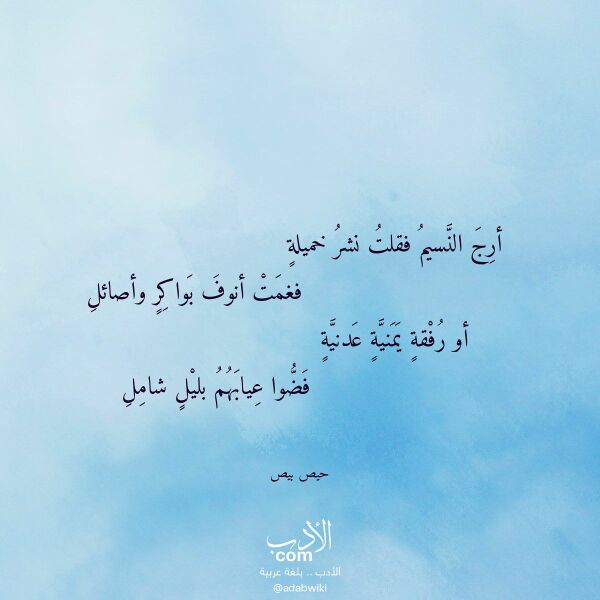 أرِجَ النَّسيمُ فقلتُ نشرُ خميلةٍ
فغمَتْ أنوفَ بَواكِرٍ وأصائلِ
أو رُفْقةٍ يَمَنيَّةٍ عَدنيَّةٍ
فَضُّوا عِيابَهُمُ بليْلٍ شامِلِ
حيص بيص
الأدب
com
الأدب .. بلغة عربية
@adabwiki